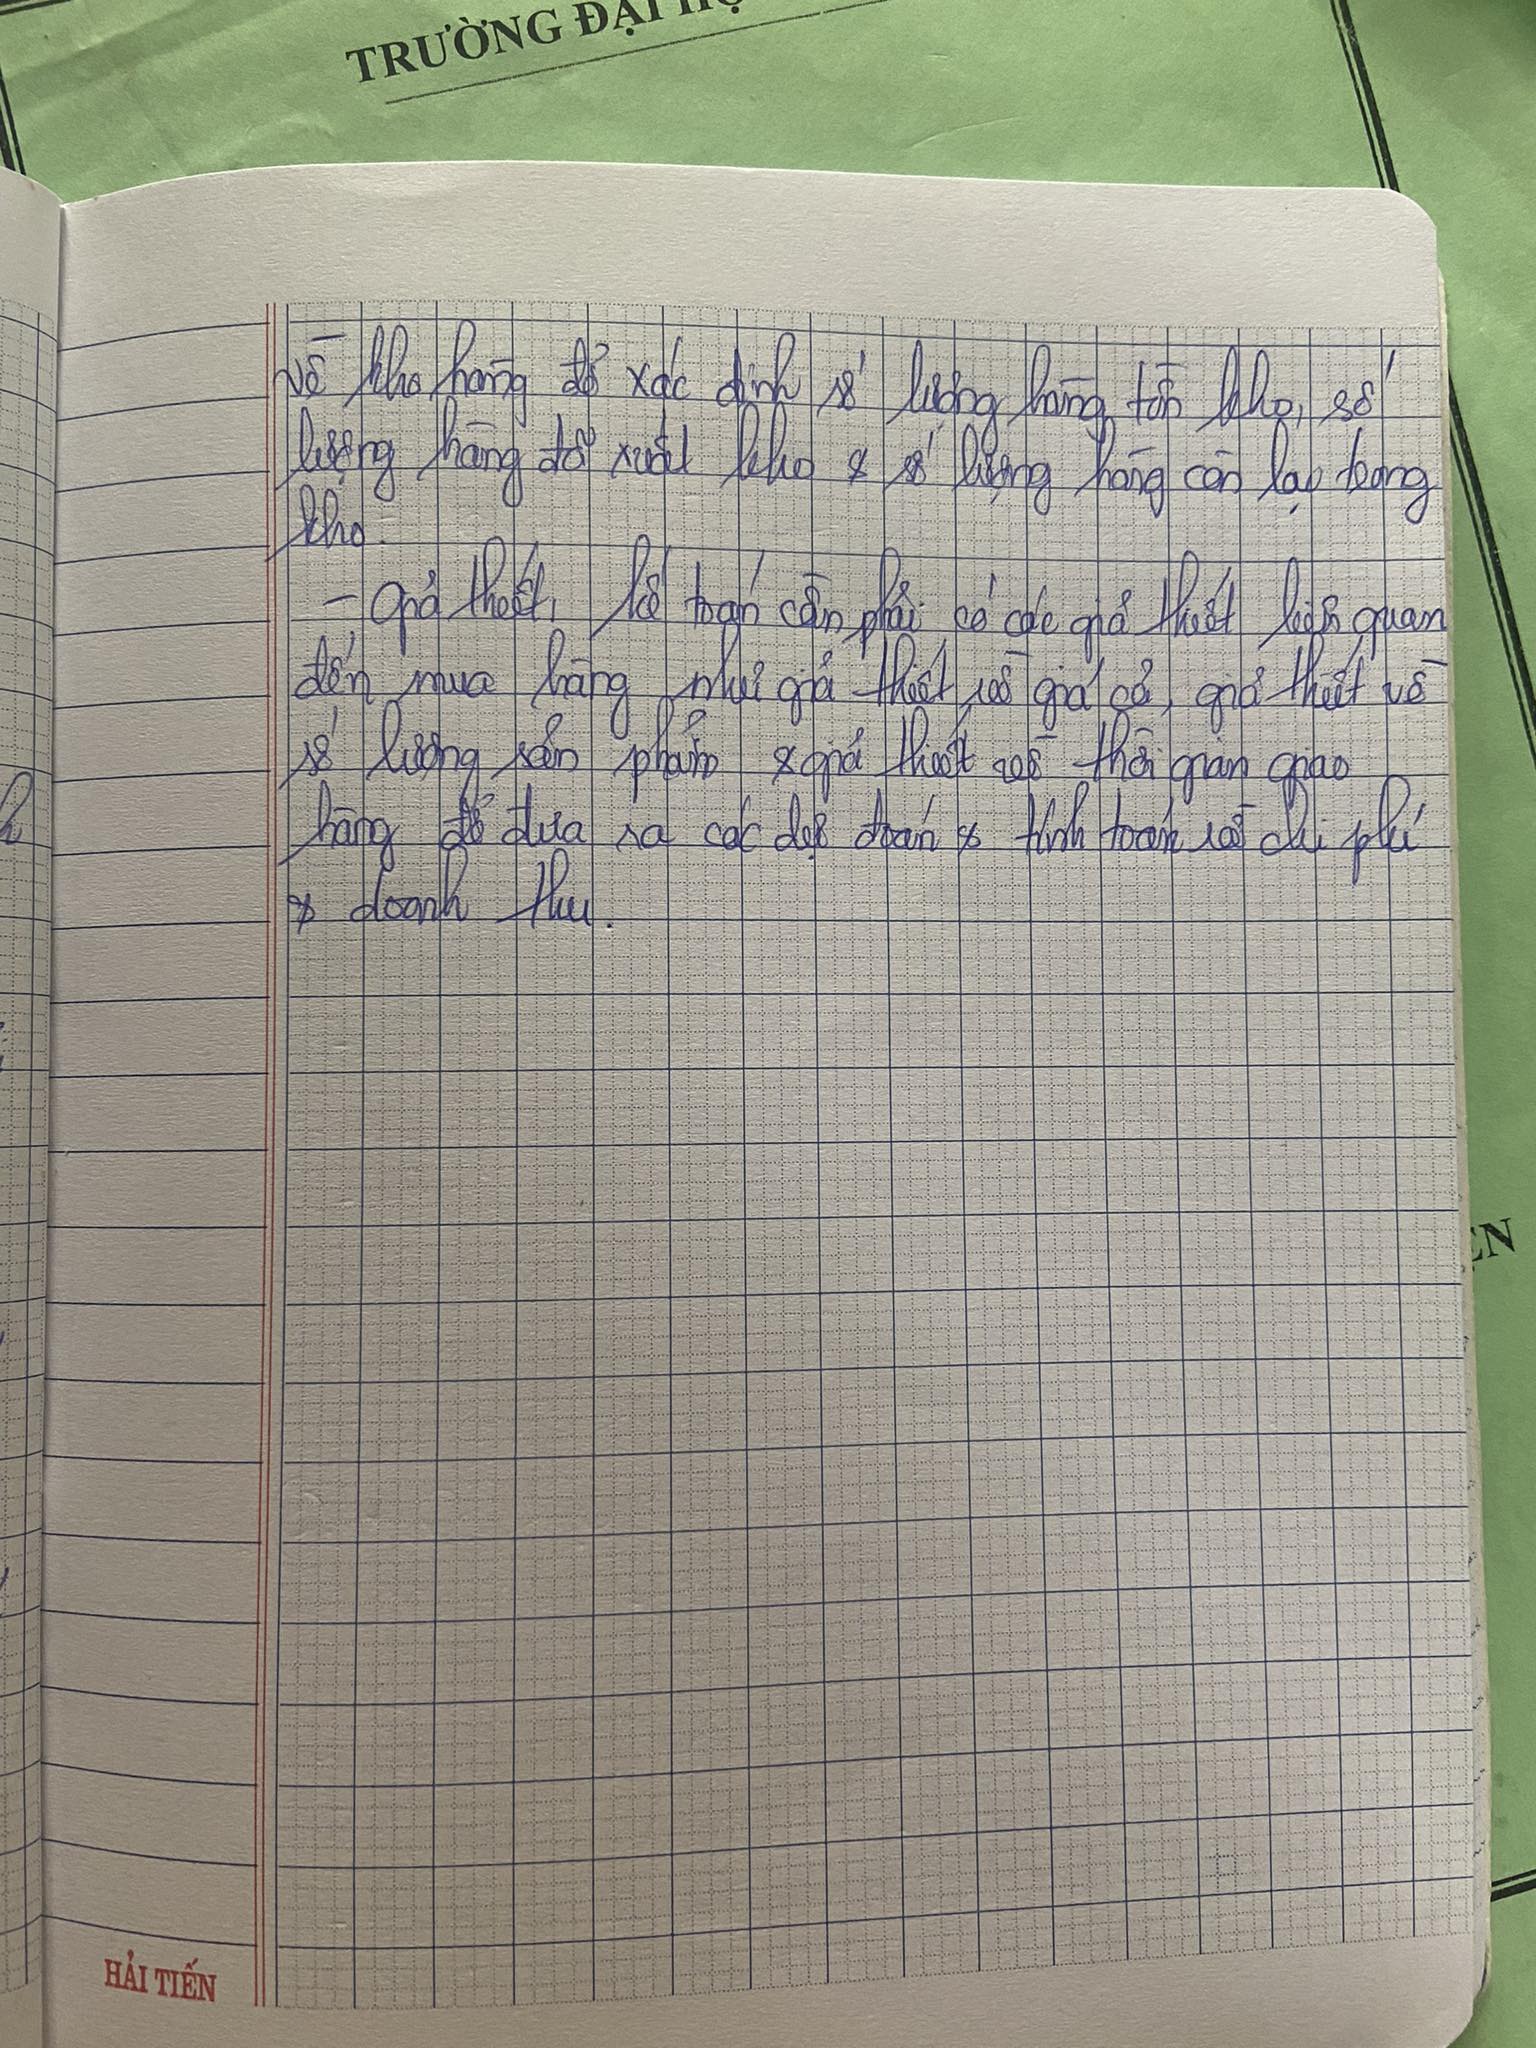 TRƯỜNG ĐẠI HỌ
về kho hàng để xác định số lượng hàng tồn kho, số
lượng hàng đã xuất kho & số lượng hàng còn lại trong
kho.
- Giả thiết, kế toán cần phải có các giả thiết liên quan
đến mua hàng như giả thiết về giá cả, giả thiết về
số lượng sản phẩm & giả thiết về thời gian giao
hàng để đưa ra các dự đoán & tính toán về chi phí
& doanh thu.
ÊN
HẢI TIẾN